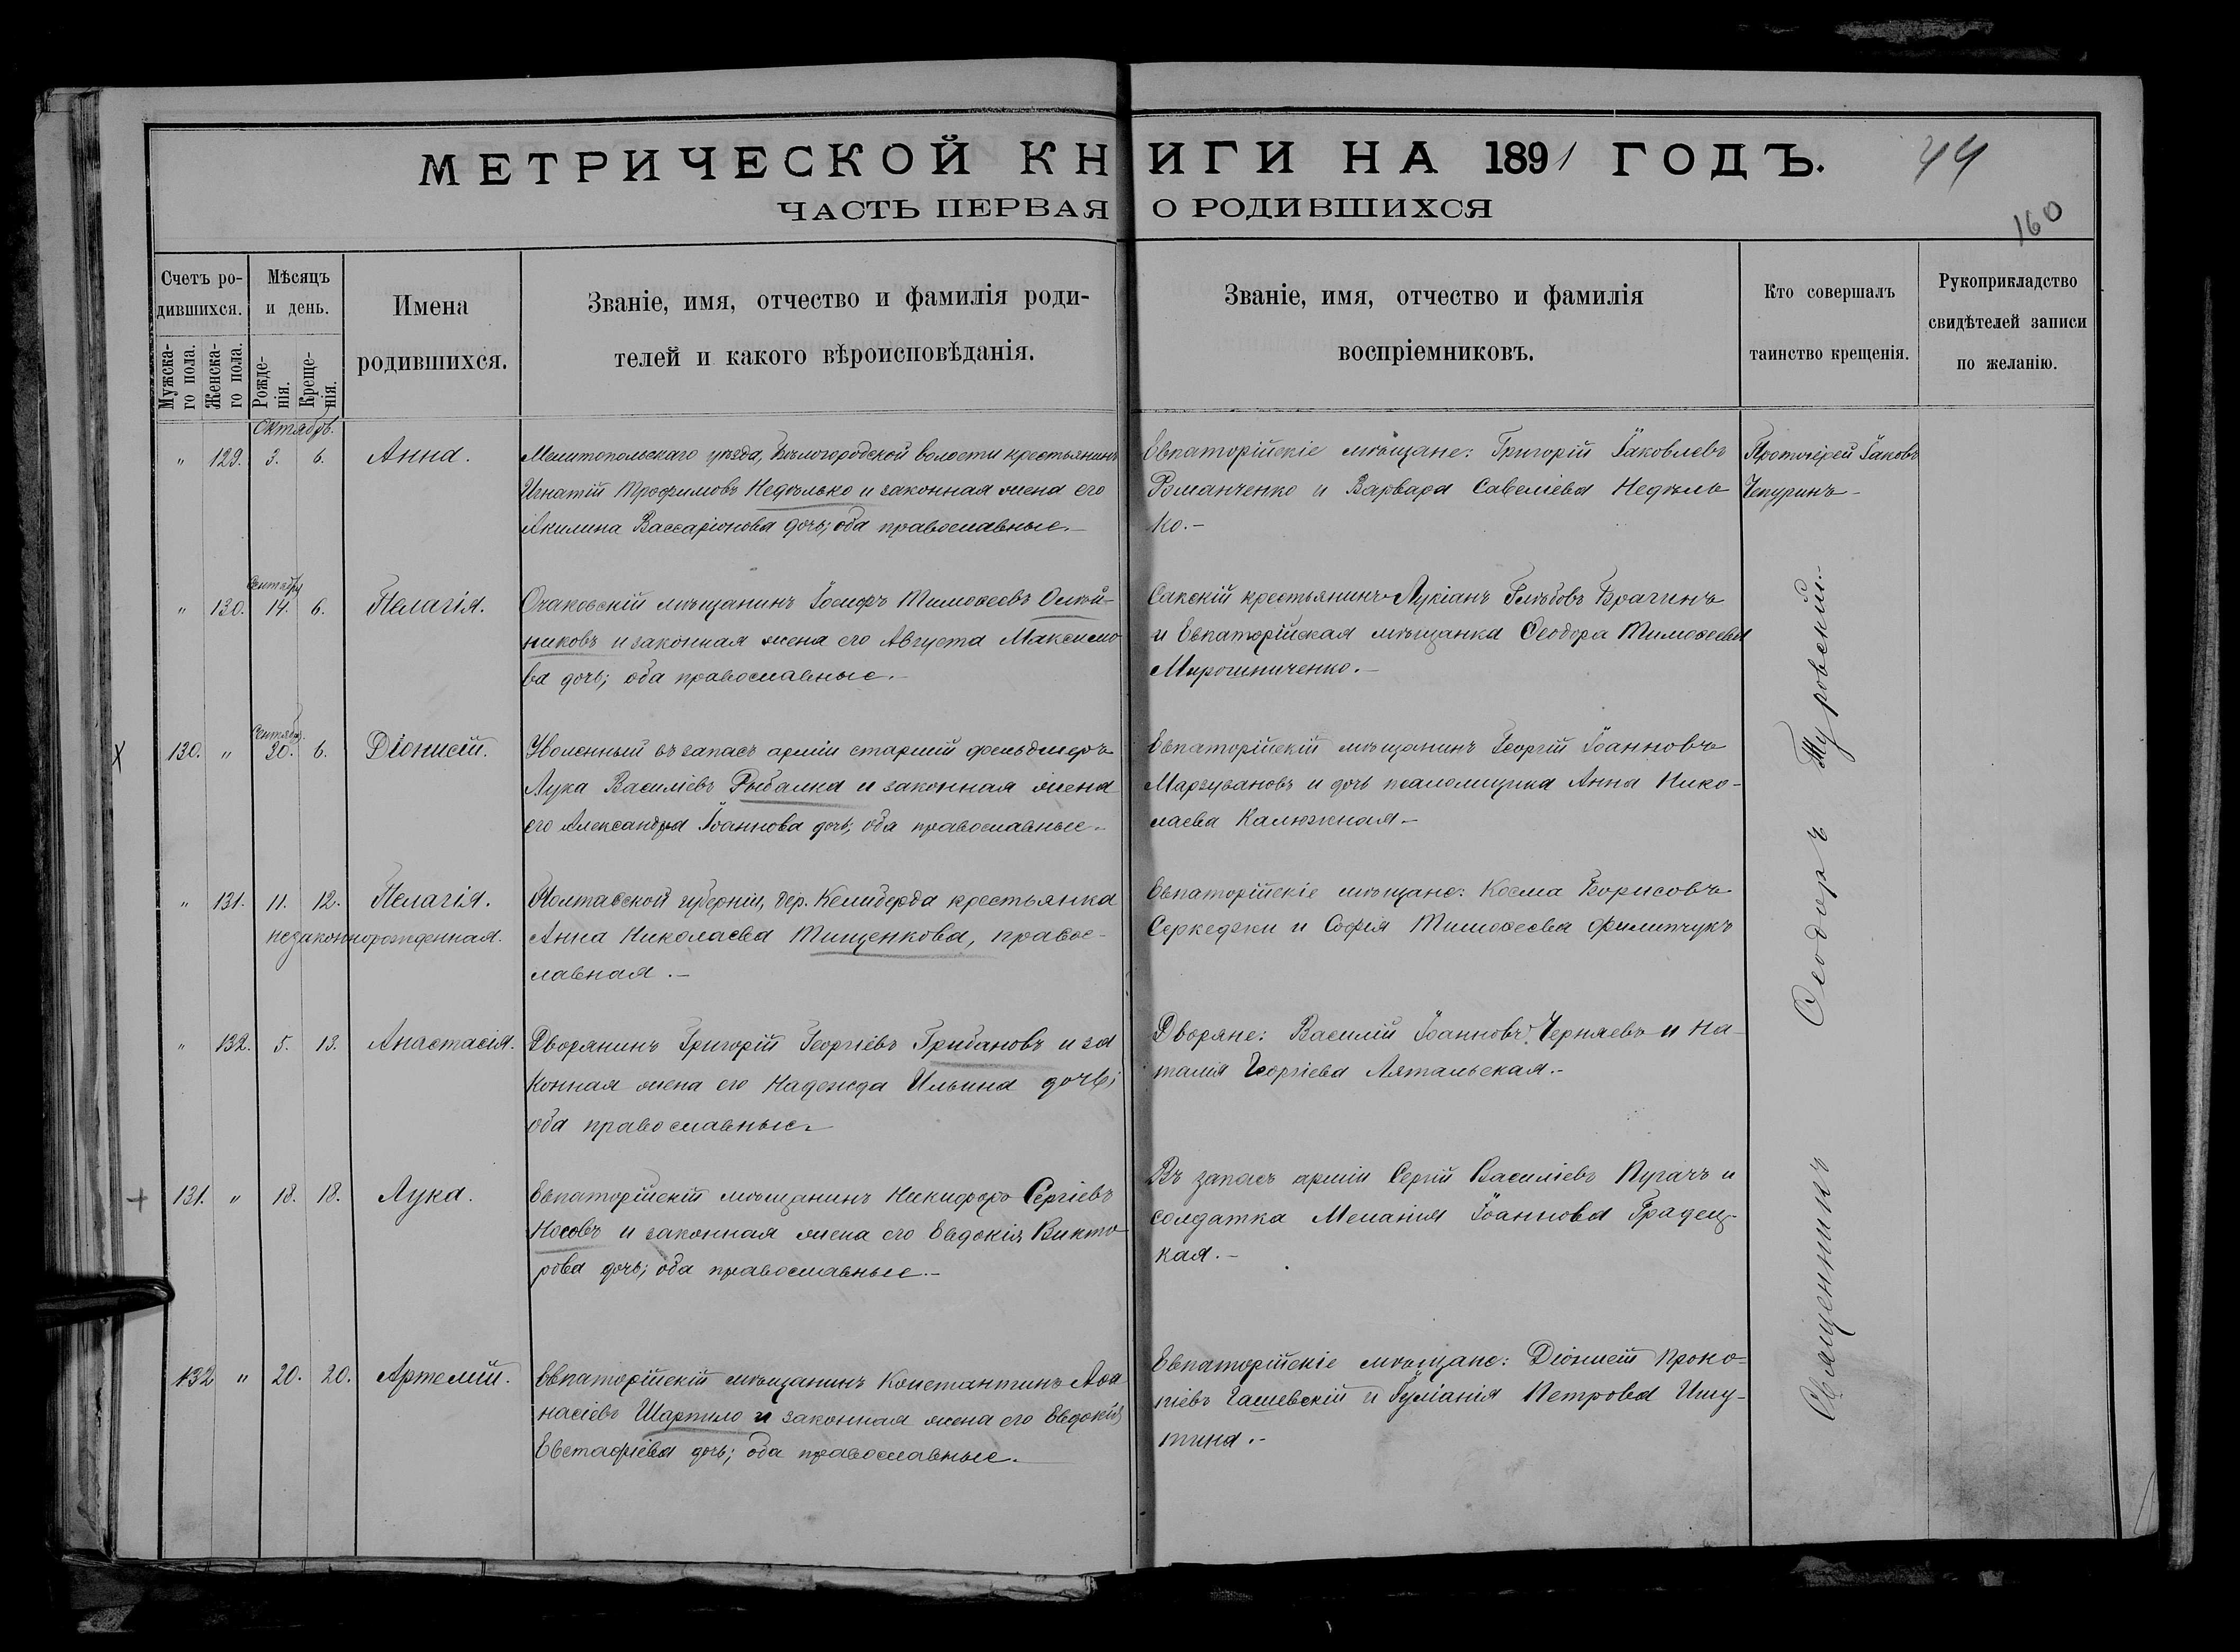 МЕТРИЧЕСКОЙ КНИГИ НА 1891 ГОДЪ.
44
ЧАСТЬ ПЕРВАЯ О РОДИВШИХСЯ
160
Счетъ ро-
дившихся.
Мужска-
го пола.
Женска-
го пола.
Мѣсяцъ
и день.
Рожде-
нія.
Креще-
нія.
Имена
родившихся.
Званіе, имя, отчество и фамилія роди-
телей и какого вѣроисповѣданія.
Званіе, имя, отчество и фамилія
воспріемниковъ.
Кто совершалъ
таинство крещенія.
Рукоприкладство
свидѣтелей записи
по желанію.
Октябрь.
" 129. 3. 6. Анна.
Мелитопольскаго уѣзда, Бѣлогородской волости крестьянинъ
Игнатій Трофимовъ Недѣлько и законная жена его
Акилина Вассаріонова дочь; оба православные.-
Евпаторійскіе мѣщане: Григорій Іаковлевъ
Романченко и Варвара Савеліева Недѣль
ко.-
Протоіерей Іаковъ
Чепуринъ-
Сентябрь
" 130. 14. 6. Пелагія.
Очаковскій мѣщанинъ Іосифъ Тимоѳеевъ Олей-
никовъ и законная жена его Августа Максимо
ва дочь; оба православные.-
Сакскій крестьянинъ Лукіанъ Глѣбовъ Брагинъ
и Евпаторійская мѣщанка Ѳеодора Тимоѳеева
Мирошниченко.-
Сентябрь.
X 130. " 30. 6. Діонисій.
Уволенный въ запасъ арміи старшій фельдшеръ
Лука Василіевъ Рыбалка и законная жена
его Александра Іоаннова дочь; оба православные-
Евпаторійскій мѣщанинъ Георгій Іоанновъ
Маргувановъ и дочь псаломщика Анна Нико-
лаева Калюжная-
" 131. 11. 12. Пелагія.
незаконнорожденная.
Полтавской губерніи, дер. Келиберда крестьянка
Анна Николаева Тищенкова, правос-
лавная.-
Евпаторійскіе мѣщане: Косма Борисовъ
Серкеджи и Софія Тимоѳеева Филипчукъ
" 132. 5. 13. Анастасія.
Дворянинъ Григорій Георгіевъ Грибановъ и за
конная жена его Надежда Ильина дочь;
оба православные.
Дворяне: Василій Іоанновъ Черняевъ и На-
талія Георгіева Лятальская.-
+ 131. " 18. 18. Лука.
Евпаторійскій мѣщанинъ Никифоръ Сергіевъ
Носовъ и законная жена его Евдокія Викто
рова дочь; оба православные.-
Въ запасъ арміи Сергій Василіевъ Пугачъ и
солдатка Меланія Іоаннова Градец-
кая.-
132 " 20. 20. Артемій.
Евпаторійскій мѣщанинъ Константинъ Аѳа
насіевъ Шарпило и законная жена его Евдокія
Евстафіева дочь; оба православные.
Евпаторійскіе мѣщане: Діонисій Проко-
піевъ Гашевскій и Іуліанія Петрова Ишу-
тина.-
Священникъ Ѳеодоръ Туровскій.